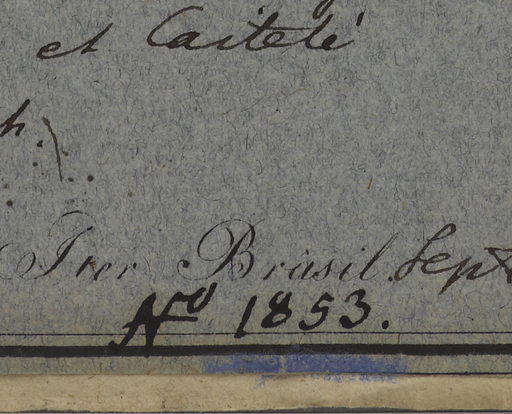 et Caiteté
h.
Iter Brasil. Sept
No 1853.